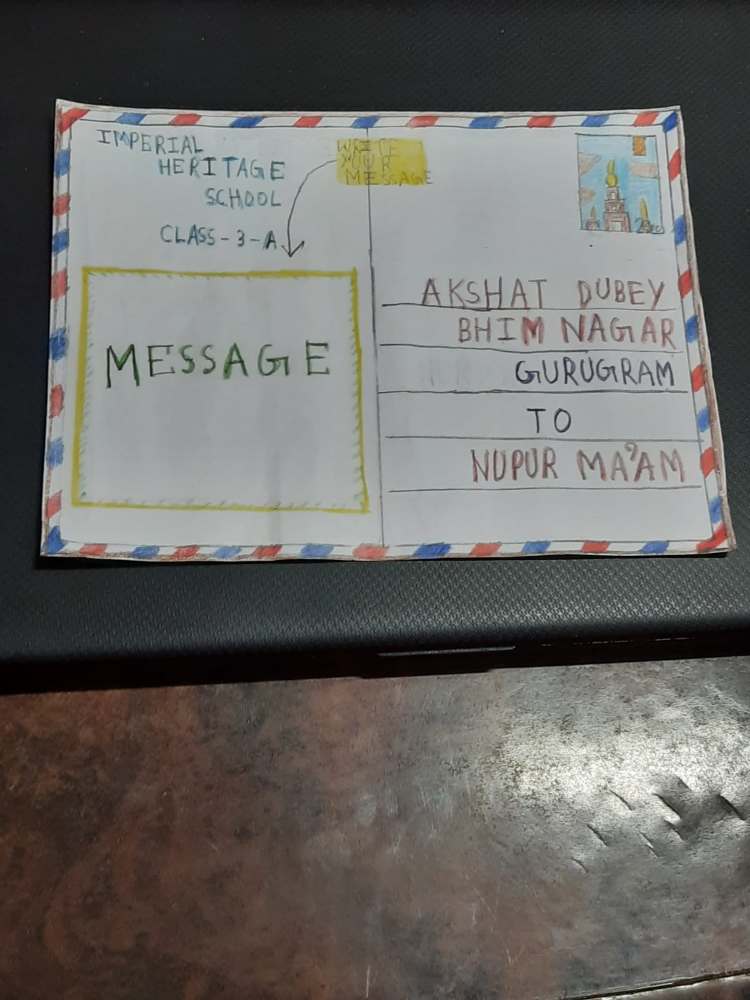 IMPERIAL
HERITAGE
SCHOOL
CLASS-3-A
WRITE
YOUR
MESSAGE
MESSAGE
AKSHAT DUBEY
BHIM NAGAR
GURUGRAM
TO
NUPUR MA'AM